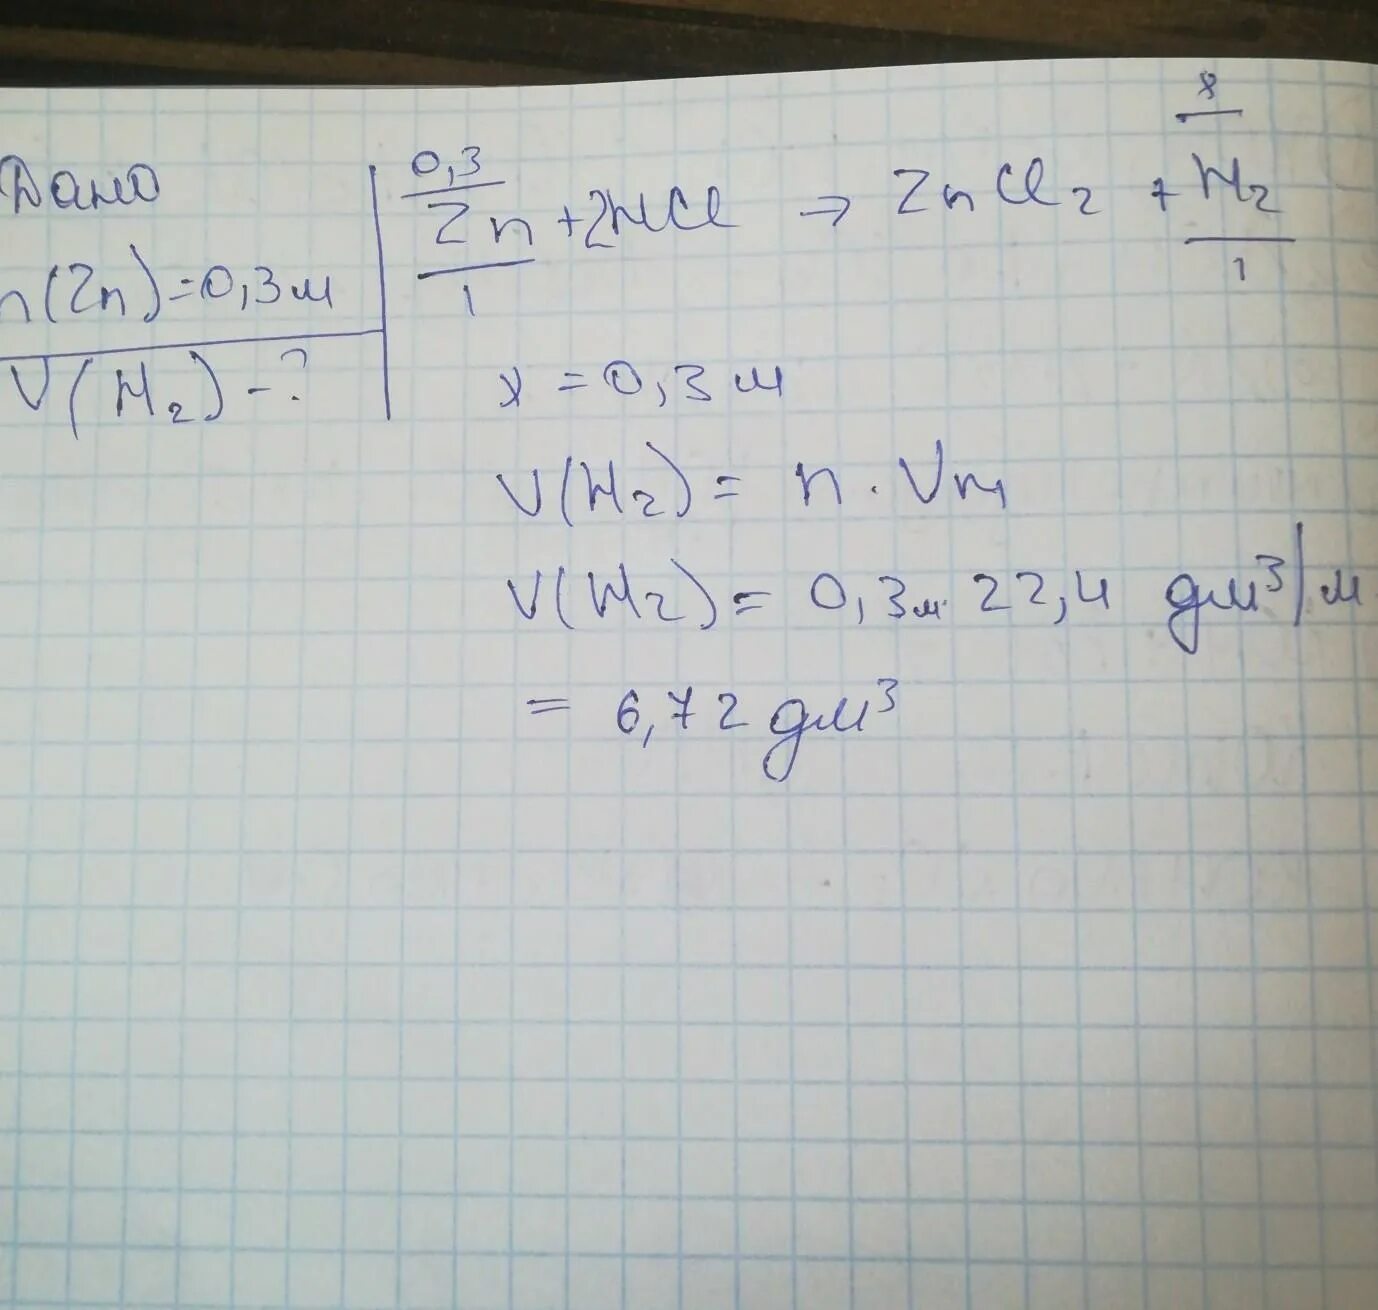 Дано
n(Zn)=0,3м
V(H2)-?
0,3 x
Zn+2HCl → ZnCl2 + H2
1 1
x = 0,3 м
V(H2) = n · Vm
V(H2) = 0,3м· 22,4 дм³/м
= 6,72 дм³